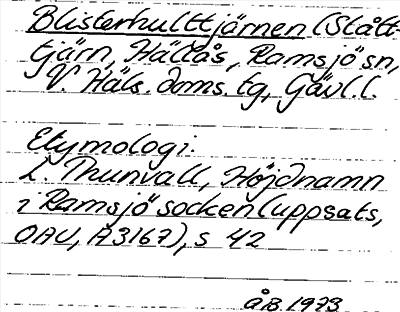 Blisterhulttjärnen (Slått-
tjärn, Hällås, Ramsjö sn,
V. Häls. doms. tg, Gävl. l.
Etymologi:
L. Thunvall, Höjdnamn
i Ramsjö socken (uppsats,
OAU, A3167), s 42
å.B. 1973